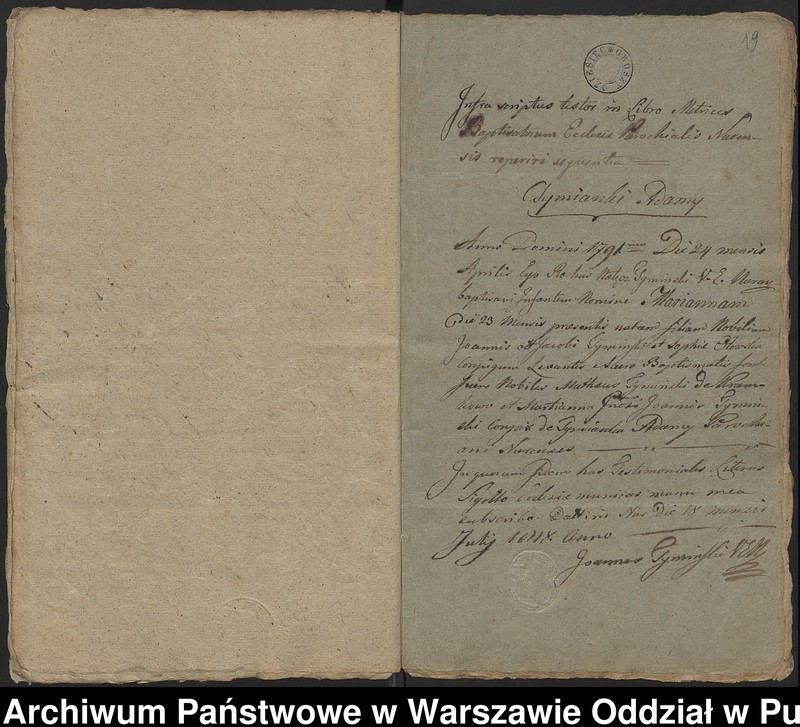 19
DZIESIEC GROSZY
Infra scriptus testor in Libro Metrices
Baptisatorum Ecclesiæ Parochialis Nuren-
sis reperiri sequentia
Tymianki Adamy
Anno Domini 1791mo Die 24 mensis
Aprilis Ego Rochus Tyminski V. E. Nuren
baptisavi Infantem Nomine Mariannam
Die 23 Mensis presentis natam filiam Nobilium
Joannis et Tyminski et Sophie
Conjugum Levantes e Sacro Baptismatis font
fuere Nobiles Matheus Tyminski de
et Marianna Joannis Tymin-
ski Conjux de Tymianki Adamy Parochi-
ani Nurenses
In quorum fidem has Testimoniales Literas
Sigillo Ecclesiæ munitas manu mea
subscribo. Datt: in Nur Die 18 mensis
Julij Anno
Joannes Tyminski VEN
Archiwum Państwowe w Warszawie Oddział w Pu